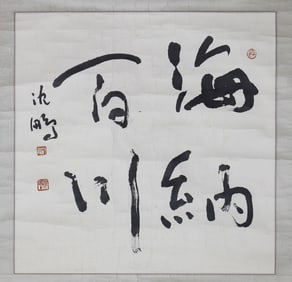 海納
百川
沈鵬